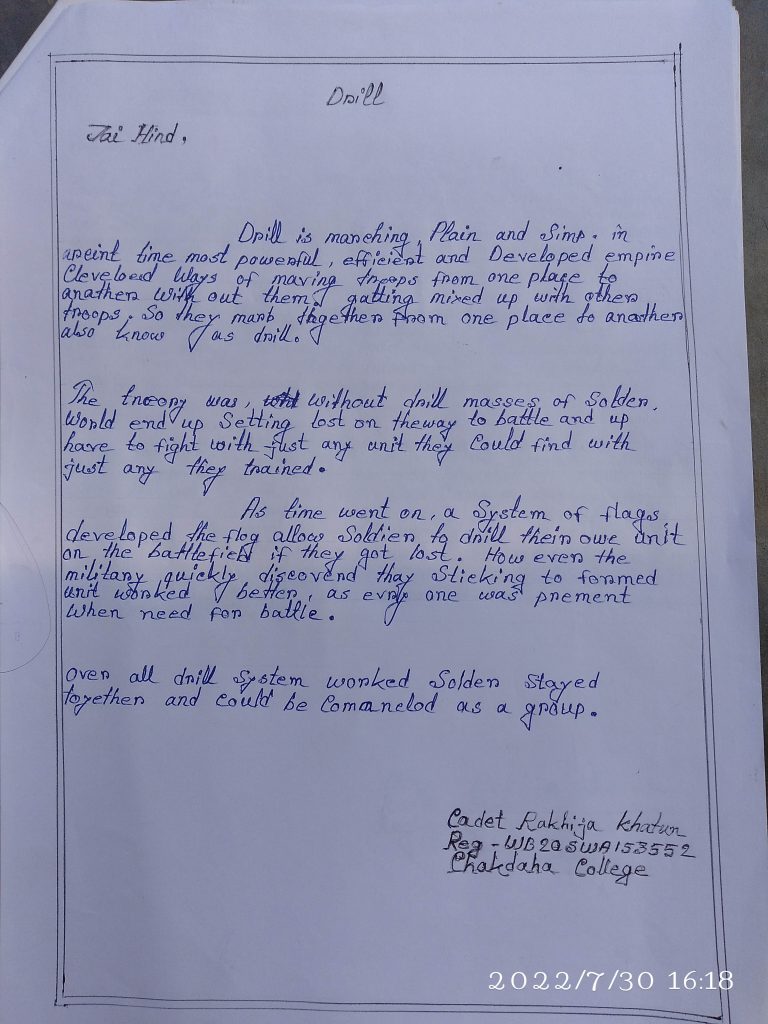 Drill
Jai Hind.
Drill is marching, Plain and Simp. in
areint time most powerful, efficient and Developed empire
Cleveloed Ways of moving troops from one place to
anather with out them gatting mixed up with other
troops. So they marb thgether from one place to anather
also know as drill.
The treory was, without drill masses of Solder,
World end up Setting lost on theway to battle and up
have to fight with just any unit they Could find with
just any they trained.
As time went on, a System of flags
developed the flog allow Soldier to drill their owe unit
on the battlefield if they got lost. How ever the
military quickly discoverd thay Sticking to formed
unit worked better, as evry one was prement
When need for battle.
Over all drill System worked Solder Stayed
together and could be Comanclod as a group.
Cadet Rakhija Khatun
Reg - WB20SWA153552
Chakdaha College
2022/7/30 16:18